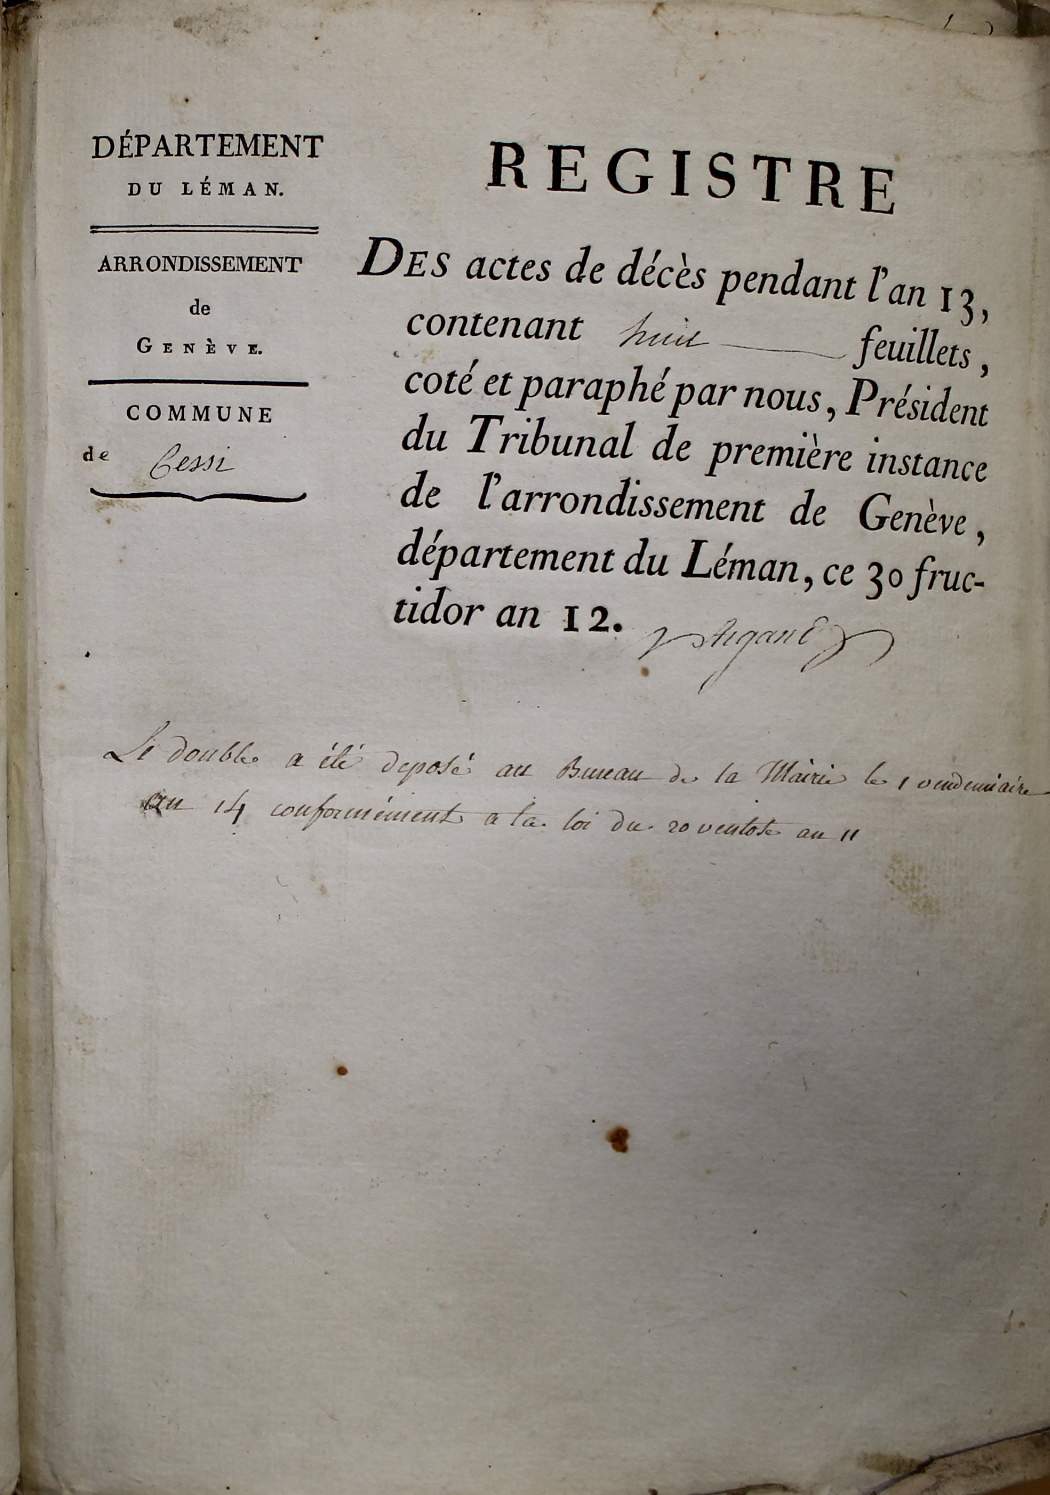 DÉPARTEMENT
DU LÉMAN.
ARRONDISSEMENT
de
GENÈVE.
COMMUNE
de Cessi
REGISTRE
DES actes de décès pendant l'an 13,
contenant huit feuillets,
coté et paraphé par nous, Président
du Tribunal de première instance
de l'arrondissement de Genève,
département du Léman, ce 30 fruc-
tidor an 12.
Argand
Le double a été deposé au Bureau de la Mairie le 1 vendemiaire
an 14 conformément a la loi du 20 ventose an 11